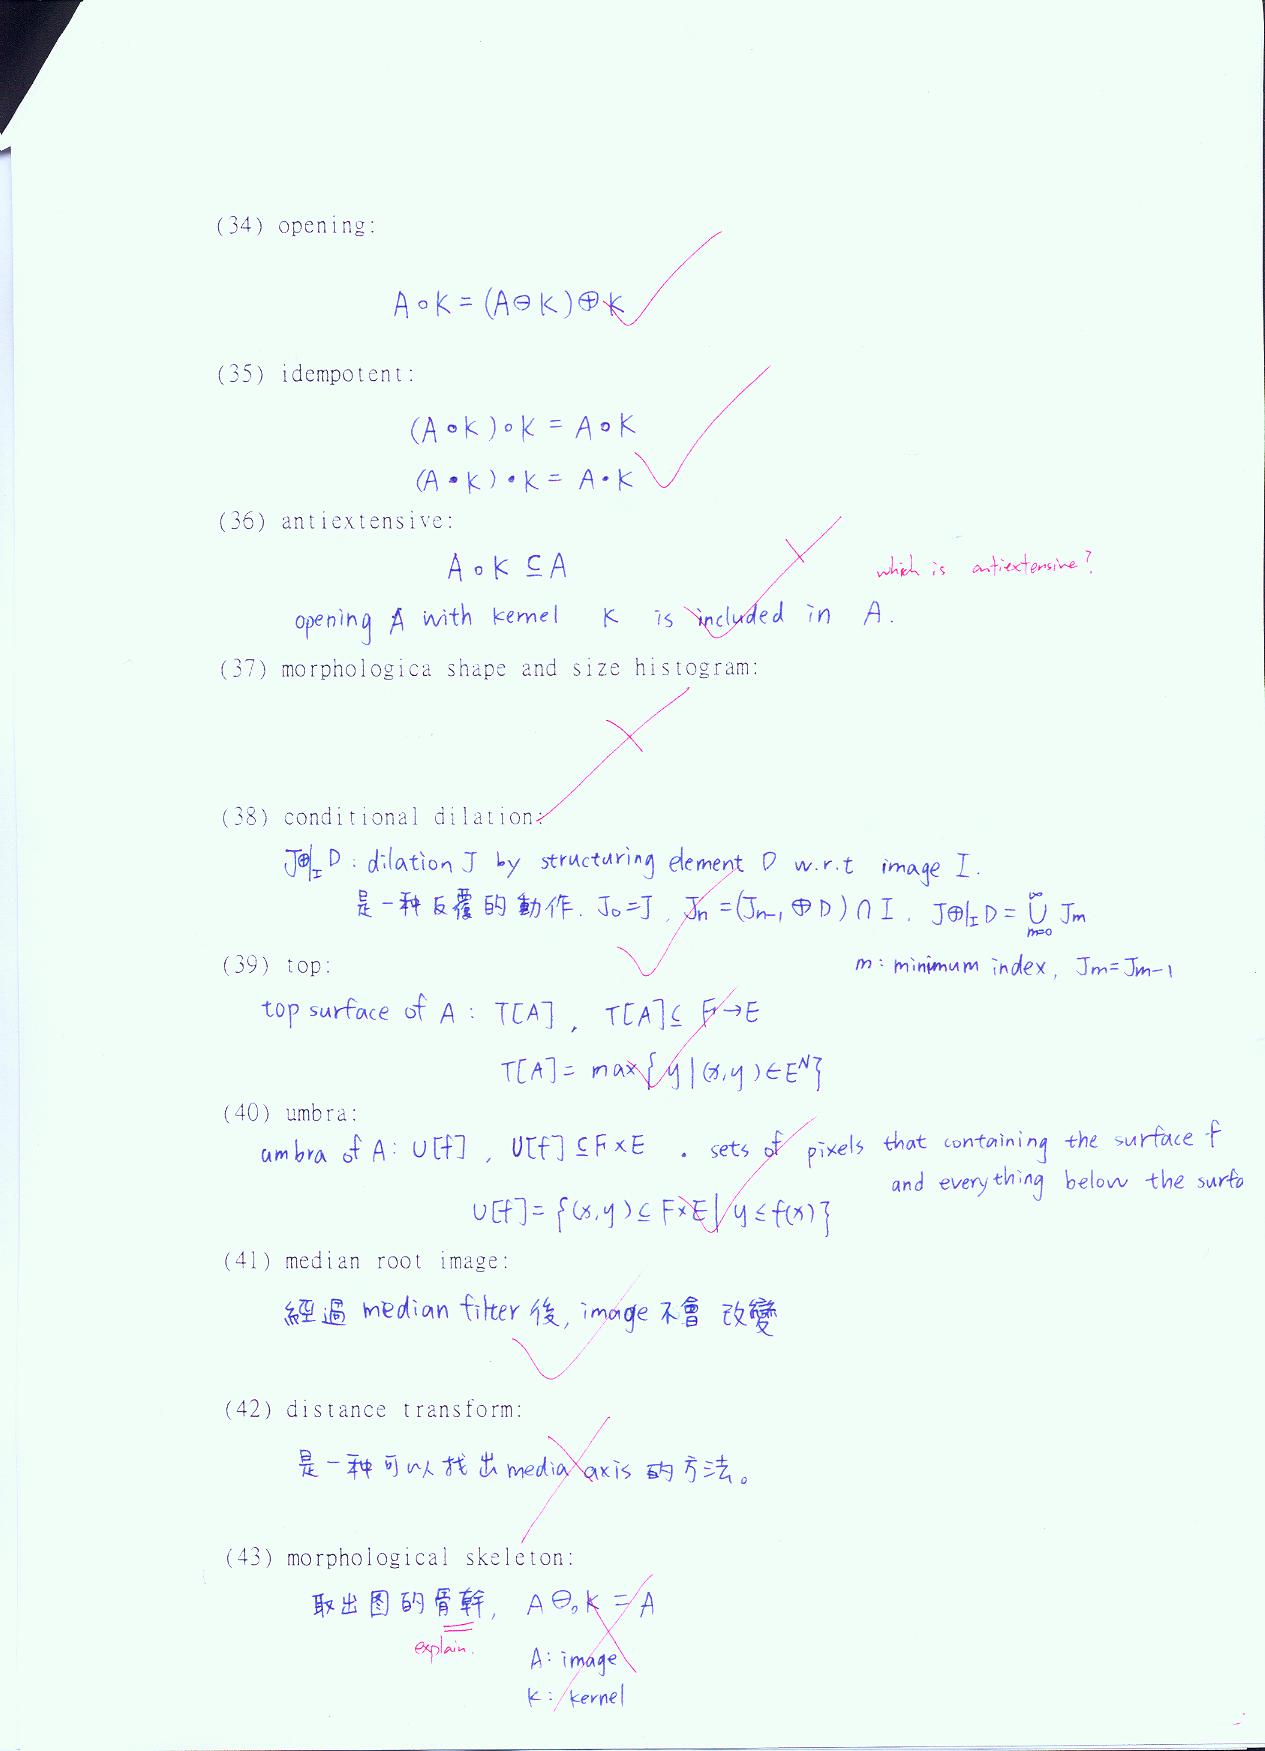 (34) opening:
A∘K = (A⊖K)⊕K
(35) idempotent:
(A∘K)∘K = A∘K
(A•K)•K = A•K
(36) antiextensive:
A∘K ⊆ A
which is antiextensive?
opening A with kernel K is included in A.
(37) morphologica shape and size histogram:
(38) conditional dilation:
J⊕|_I D : dilation J by structuring element D w.r.t image I.
是一种反覆的動作. J₀=J, Jn =(Jn-1 ⊕ D) ∩ I. J⊕|_I D = ∞∪m=0 Jm
(39) top:
m: minimum index, Jm=Jm-1
top surface of A : T[A] , T[A] ⊆ F → E
T[A] = max{ y | (x,y) ∈ E^N}
(40) umbra:
umbra of A: U[f] , U[f] ⊆ F×E . sets of pixels that containing the surface f
and everything below the surfa
U[f] = {(x,y) ⊆ F×E | y ≤ f(x)}
(41) median root image:
經過 median filter 後, image 不會 改變
(42) distance transform:
是一种可以找出 media axis 的方法。
(43) morphological skeleton:
取出图的骨幹, A⊖₀K = A
explain.
A: image
K: kernel